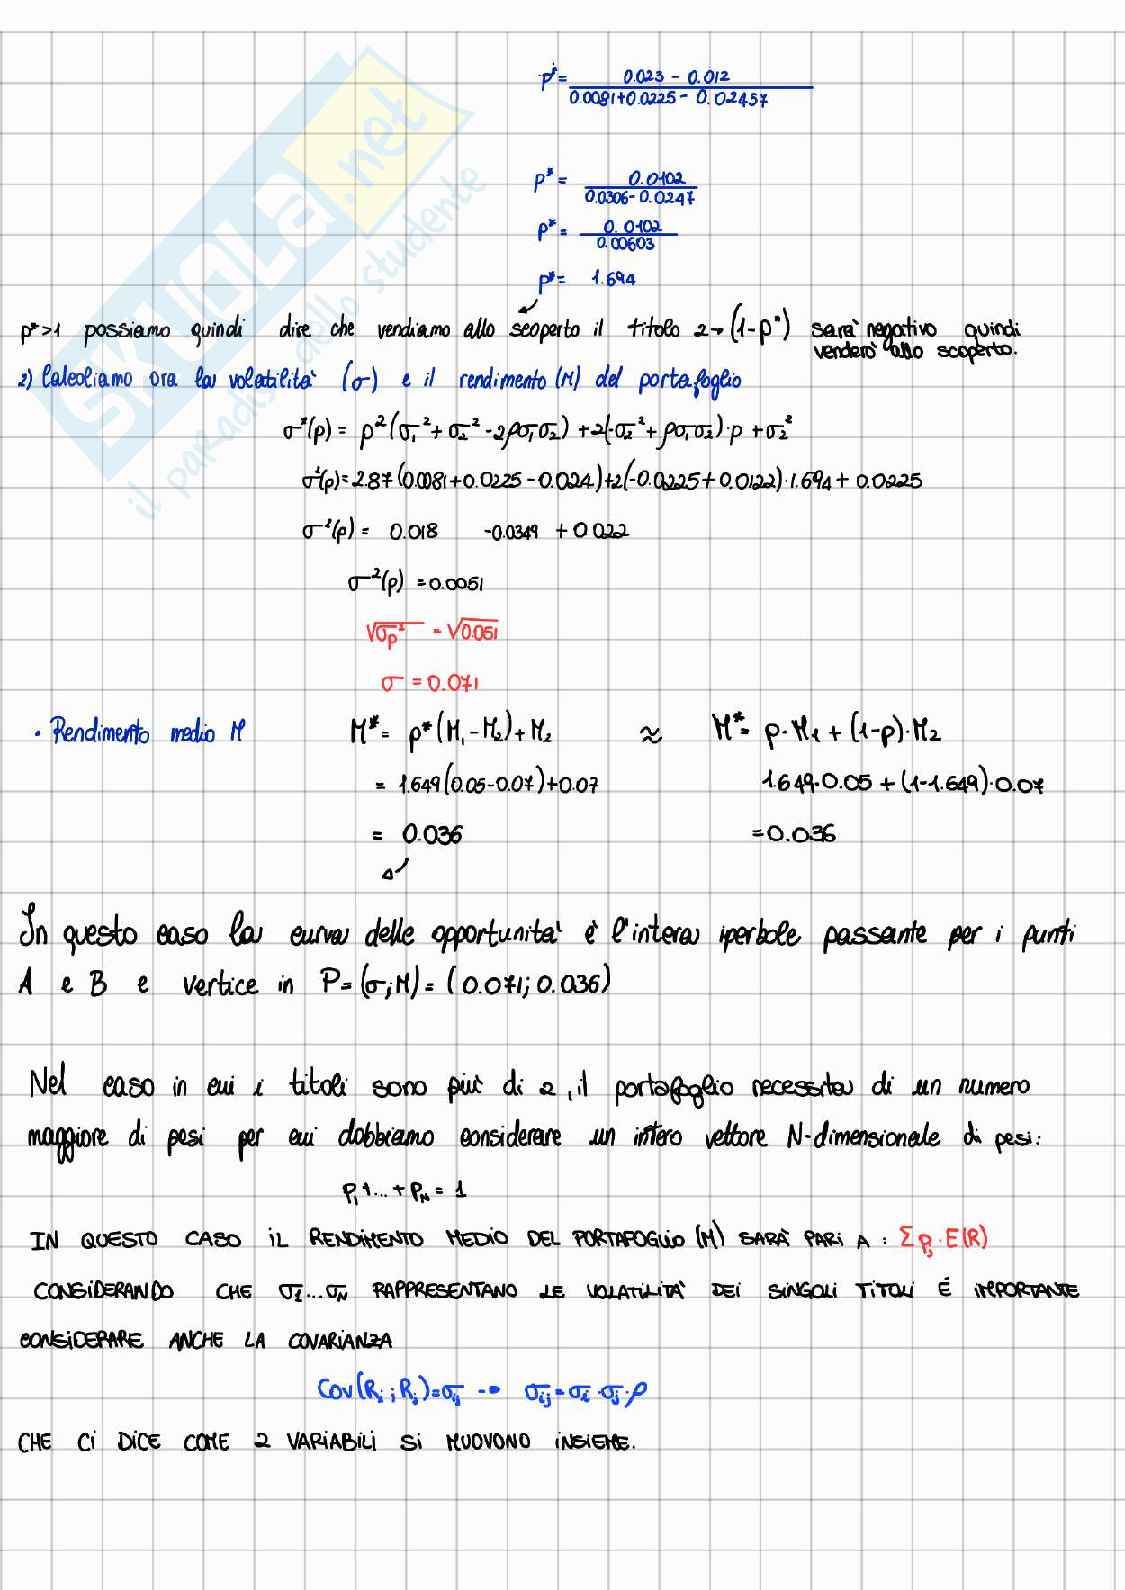 p* = 0.023 - 0.012 / 0.0081+0.0225 - 0.02457
p* = 0.0102 / 0.0306-0.0247
p* = 0.0102 / 0.00603
p* = 1.694
p*>1 possiamo quindi dire che vendiamo allo scoperto il titolo 2→(1-p*) sarà negativo quindi
venderò allo scoperto.
2) Calcoliamo ora la volatilità (σ) e il rendimento (M) del portafoglio
σ²(p) = p²(σ₁²+σ₂²-2ρσ₁σ₂)+2(-σ₂²+ρσ₁σ₂)·p+σ₂²
σ²(p)=2.87(0.0081+0.0225-0.024)+2(-0.0225+0.0122)·1.694+0.0225
σ²(p) = 0.018 -0.0349 +0.022
σ²(p) =0.0051
√σp² = √0.051
σ = 0.071
· Rendimento medio M M* = p*(M₁-M₂)+M₂ ≈ M* = p·M₁+(1-p)·M₂
= 1.649(0.05-0.07)+0.07 1.649·0.05+(1-1.649)·0.07
= 0.036 =0.036
In questo caso la curva delle opportunità è l'intera iperbole passante per i punti
A e B e vertice in P=(σ;M)=(0.071; 0.036)
Nel caso in cui i titoli sono più di 2, il portafoglio necessita di un numero
maggiore di pesi per cui dobbiamo considerare un intero vettore N-dimensionale di pesi:
P₁+...+PN = 1
IN QUESTO CASO IL RENDIMENTO MEDIO DEL PORTAFOGLIO (M) SARÀ PARI A: Σ Pj·E(R)
CONSIDERANDO CHE σ1...σN RAPPRESENTANO LE VOLATILITÀ DEI SINGOLI TITOLI È IMPORTANTE
CONSIDERARE ANCHE LA COVARIANZA
Cov(Ri;Rj)=σij → σij=σi·σj·ρ
CHE CI DICE COME 2 VARIABILI SI MUOVONO INSIEME.
SKUOLA.net
il paradiso dello studente